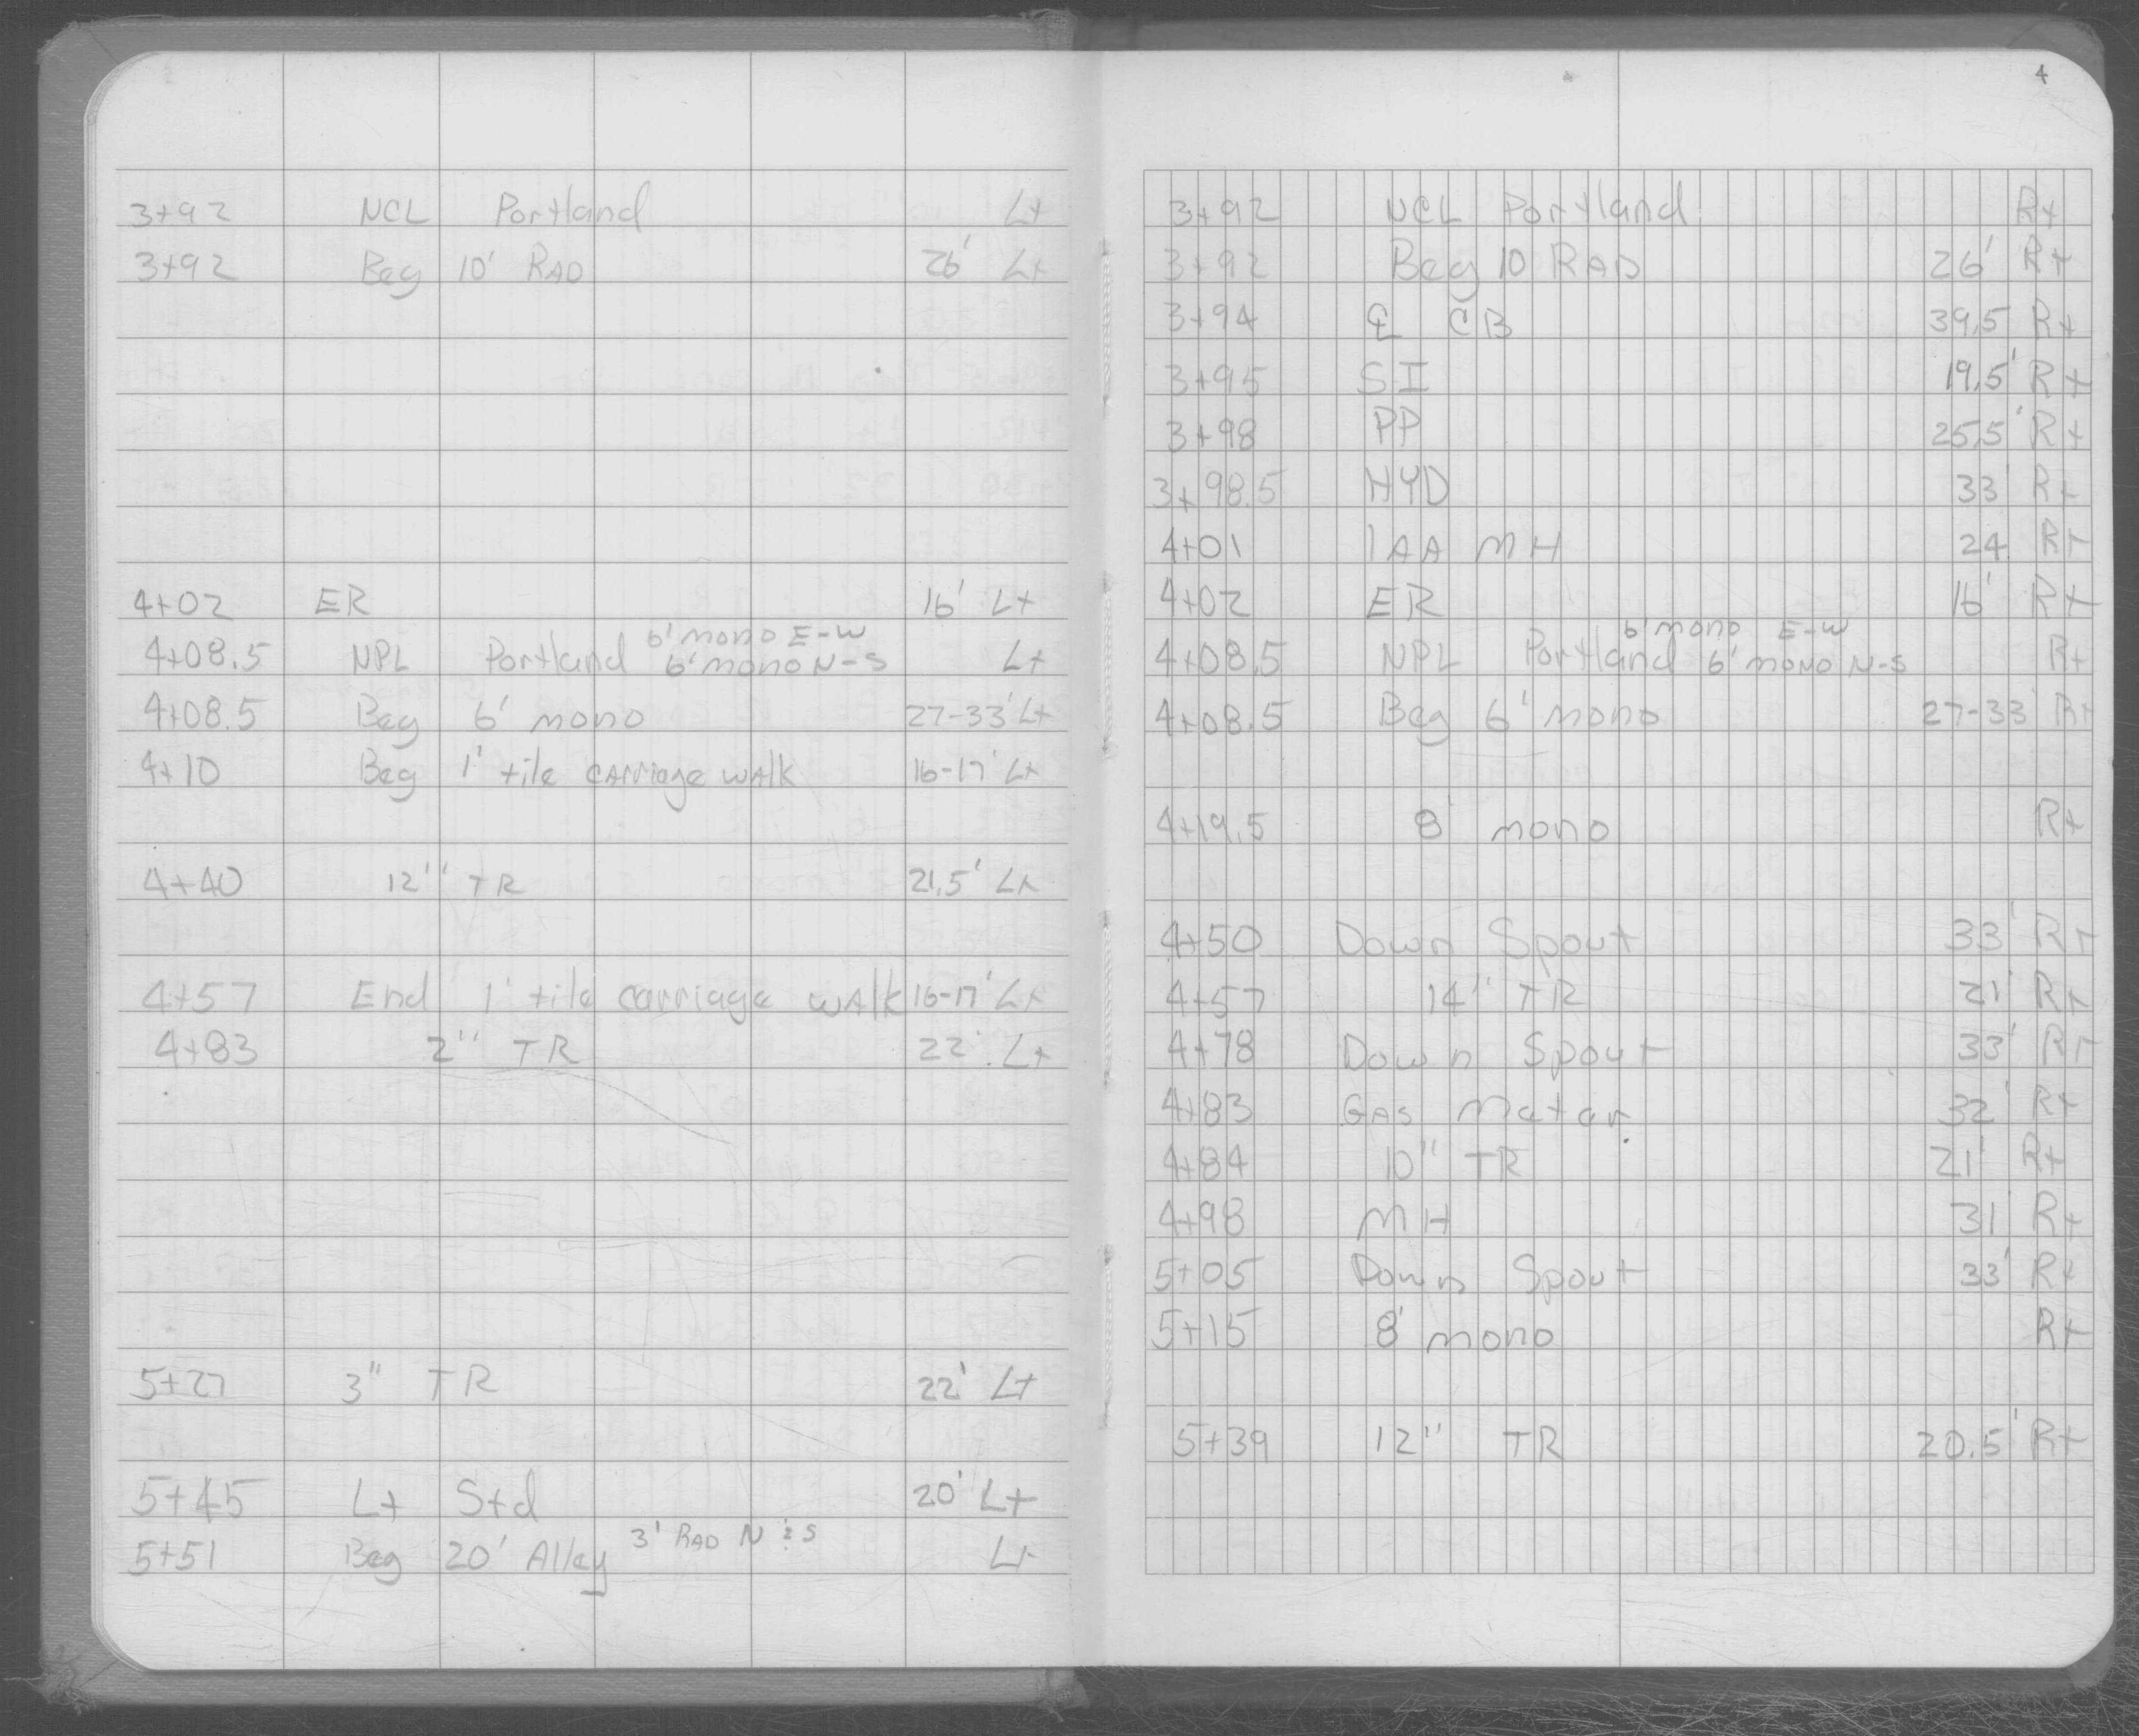 3+92 NCL Portland Lt
3+92 Beg 10' RAD 26' Lt
4+02 ER 16' Lt
6' mono E-W
4+08.5 NPL Portland 6' mono N-S Lt
4+08.5 Beg 6' mono 27-33' Lt
4+10 Beg 1' tile carriage walk 16-17' Lt
4+40 12" TR 21.5' Lt
4+57 End 1' tile carriage walk 16-17' Lt
4+83 2" TR 22' Lt
5+27 3" TR 22' Lt
5+45 Lt Std 20' Lt
5+51 Beg 20' Alley 3' RAD N & S Lt
4
3+92 NCL Portland Rt
3+92 Beg 10 RAD 26' Rt
3+94 ℄ CB 39.5 Rt
3+95 SI 19.5' Rt
3+98 PP 25.5' Rt
3+98.5 HYD 33' Rt
4+01 1AA MH 24 Rt
4+02 ER 16' Rt
6' mono E-W
4+08.5 NPL Portland 6' mono N-S Rt
4+08.5 Beg 6' mono 27-33' Rt
4+19.5 8' mono Rt
4+50 Down Spout 33' Rt
4+57 14" TR 21' Rt
4+78 Down Spout 33' Rt
4+83 Gas Meter 32' Rt
4+84 10" TR 21' Rt
4+98 MH 31' Rt
5+05 Down Spout 33' Rt
5+15 8' mono Rt
5+39 12" TR 20.5' Rt